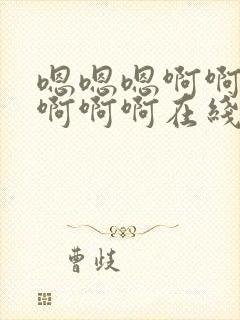 嗯嗯嗯啊啊
啊啊啊在线
曹歧